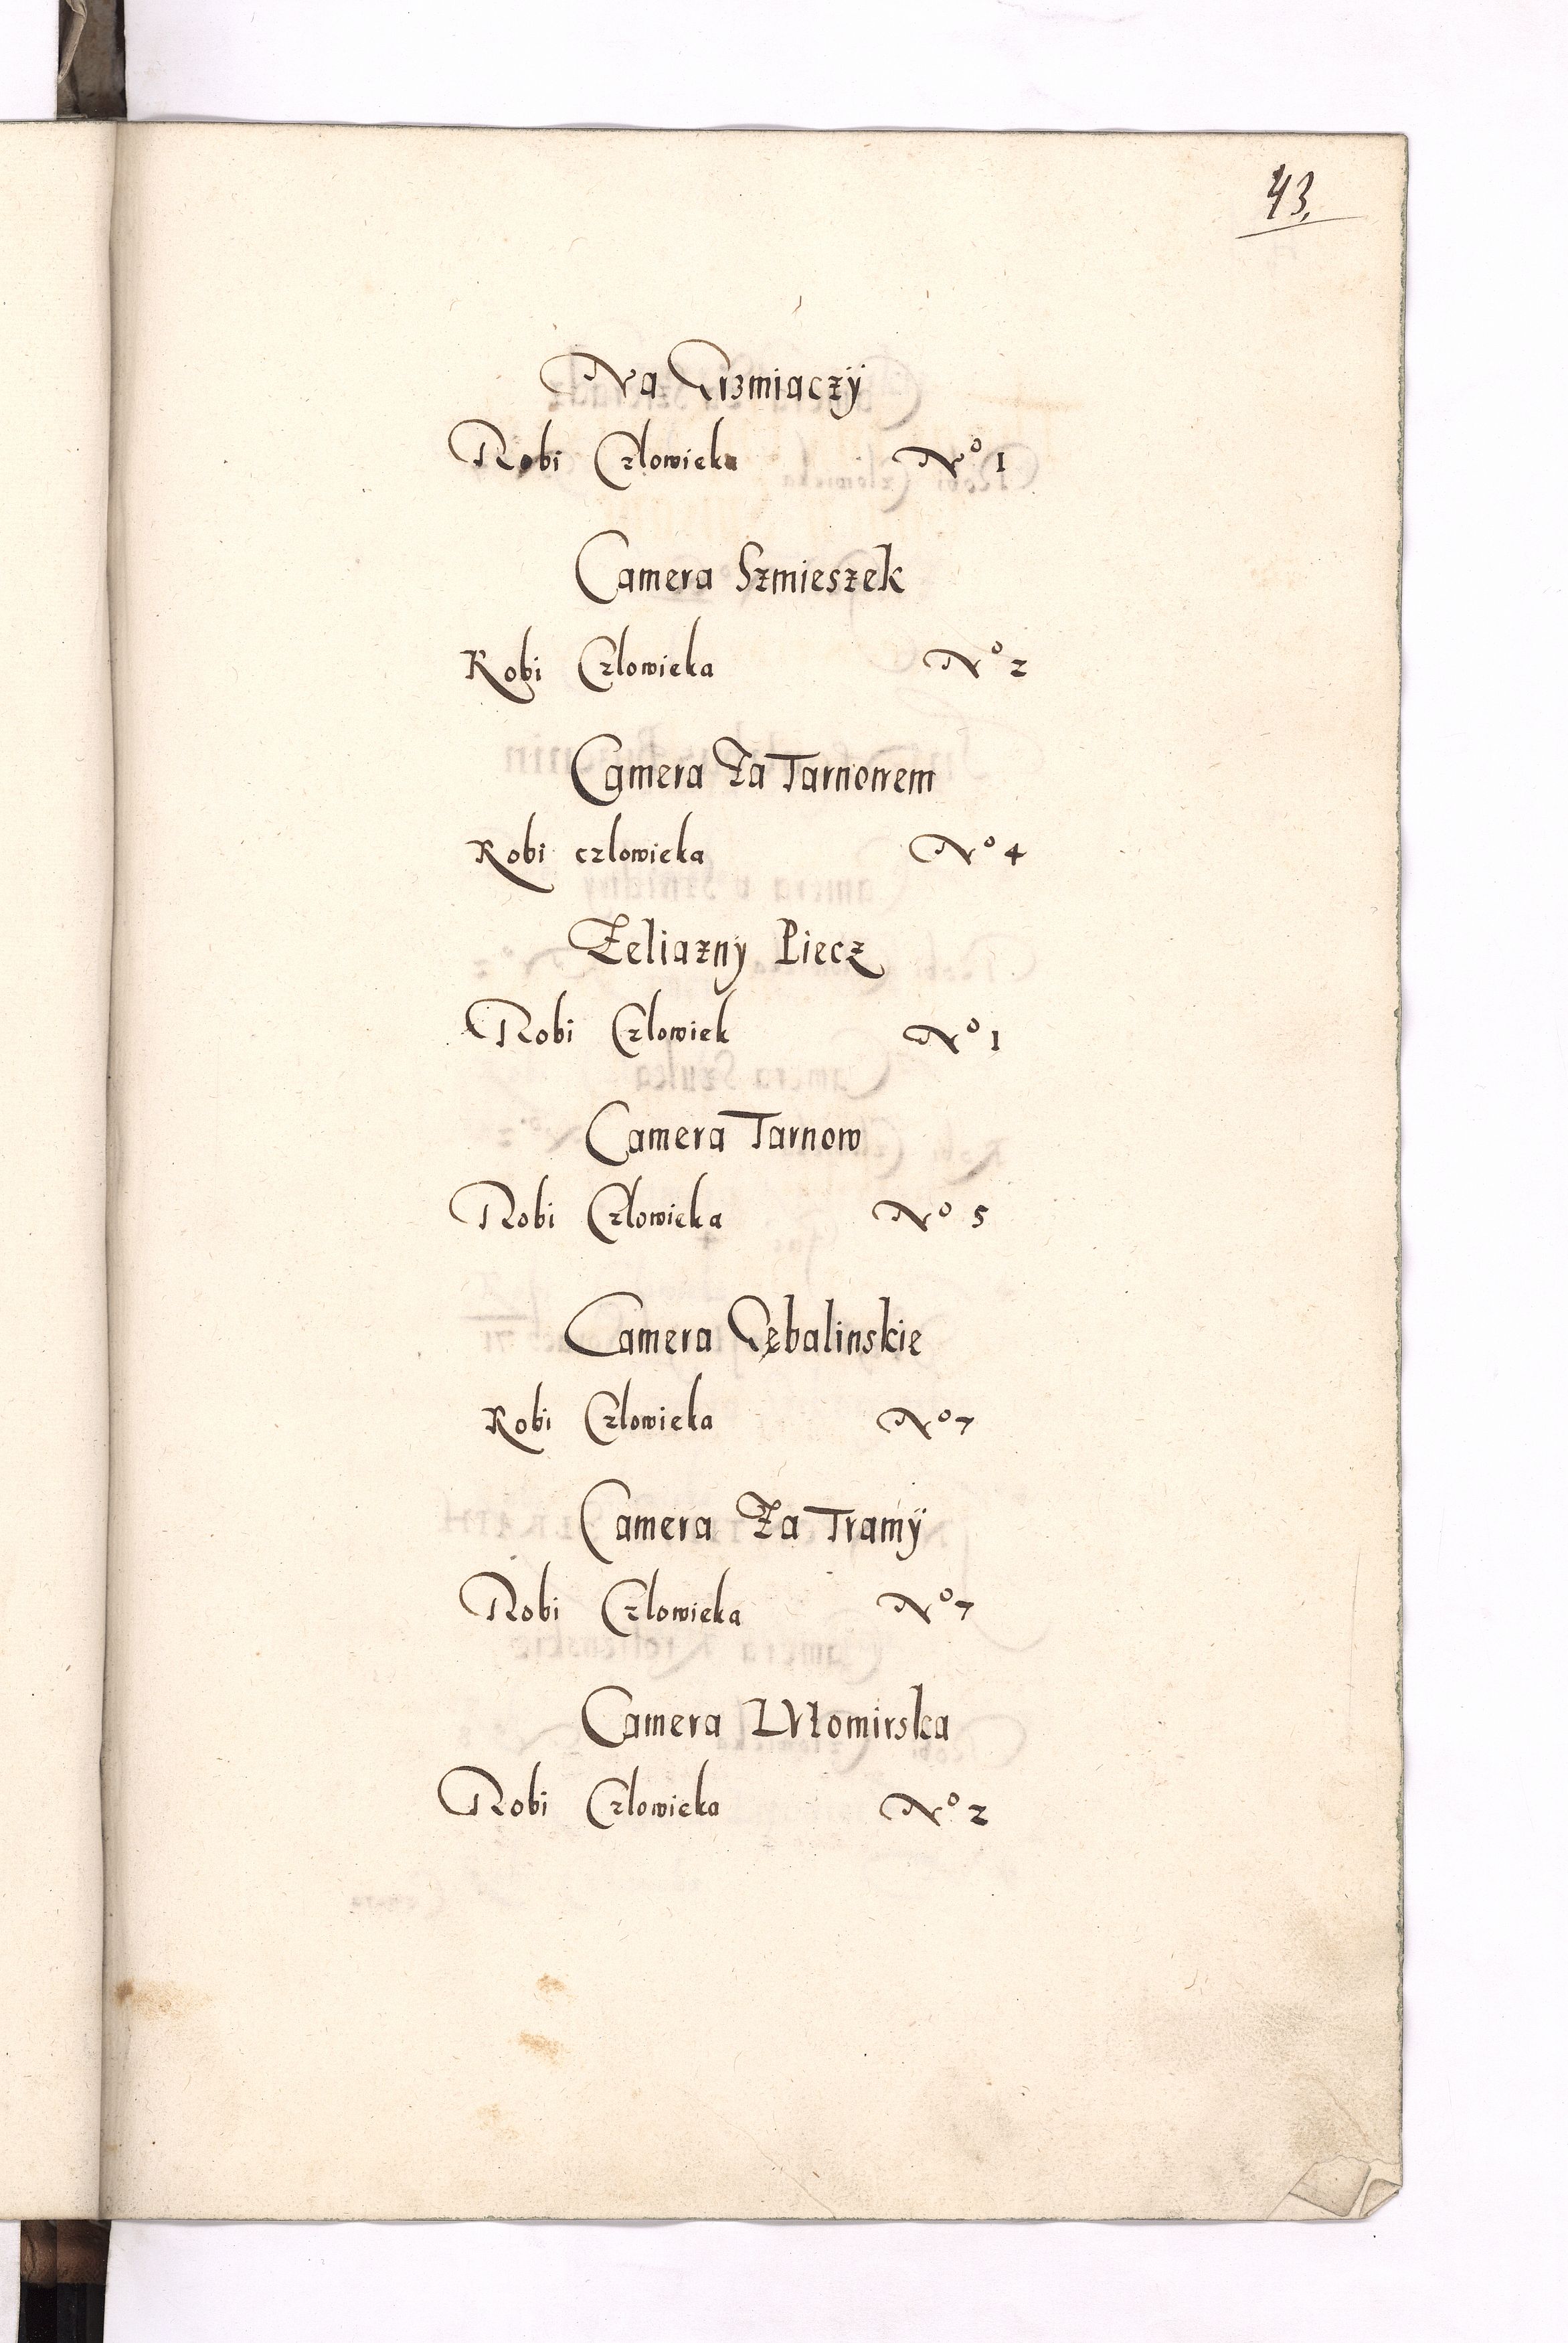 43.
Na Grzmiączÿ
Robi Człowieka Nº 1
Camera Szmieszek
Robi Człowieka Nº 2
Camera Za Tarnowem
Robi człowieka Nº 4
Zeliazny Piecz
Robi Człowiek Nº 1
Camera Tarnow
Robi Człowieka Nº 5
Camera Gębalinskie
Robi Człowieka Nº 7
Camera Za Tramÿ
Robi Człowieka Nº 7
Camera
Robi Człowieka Nº 2